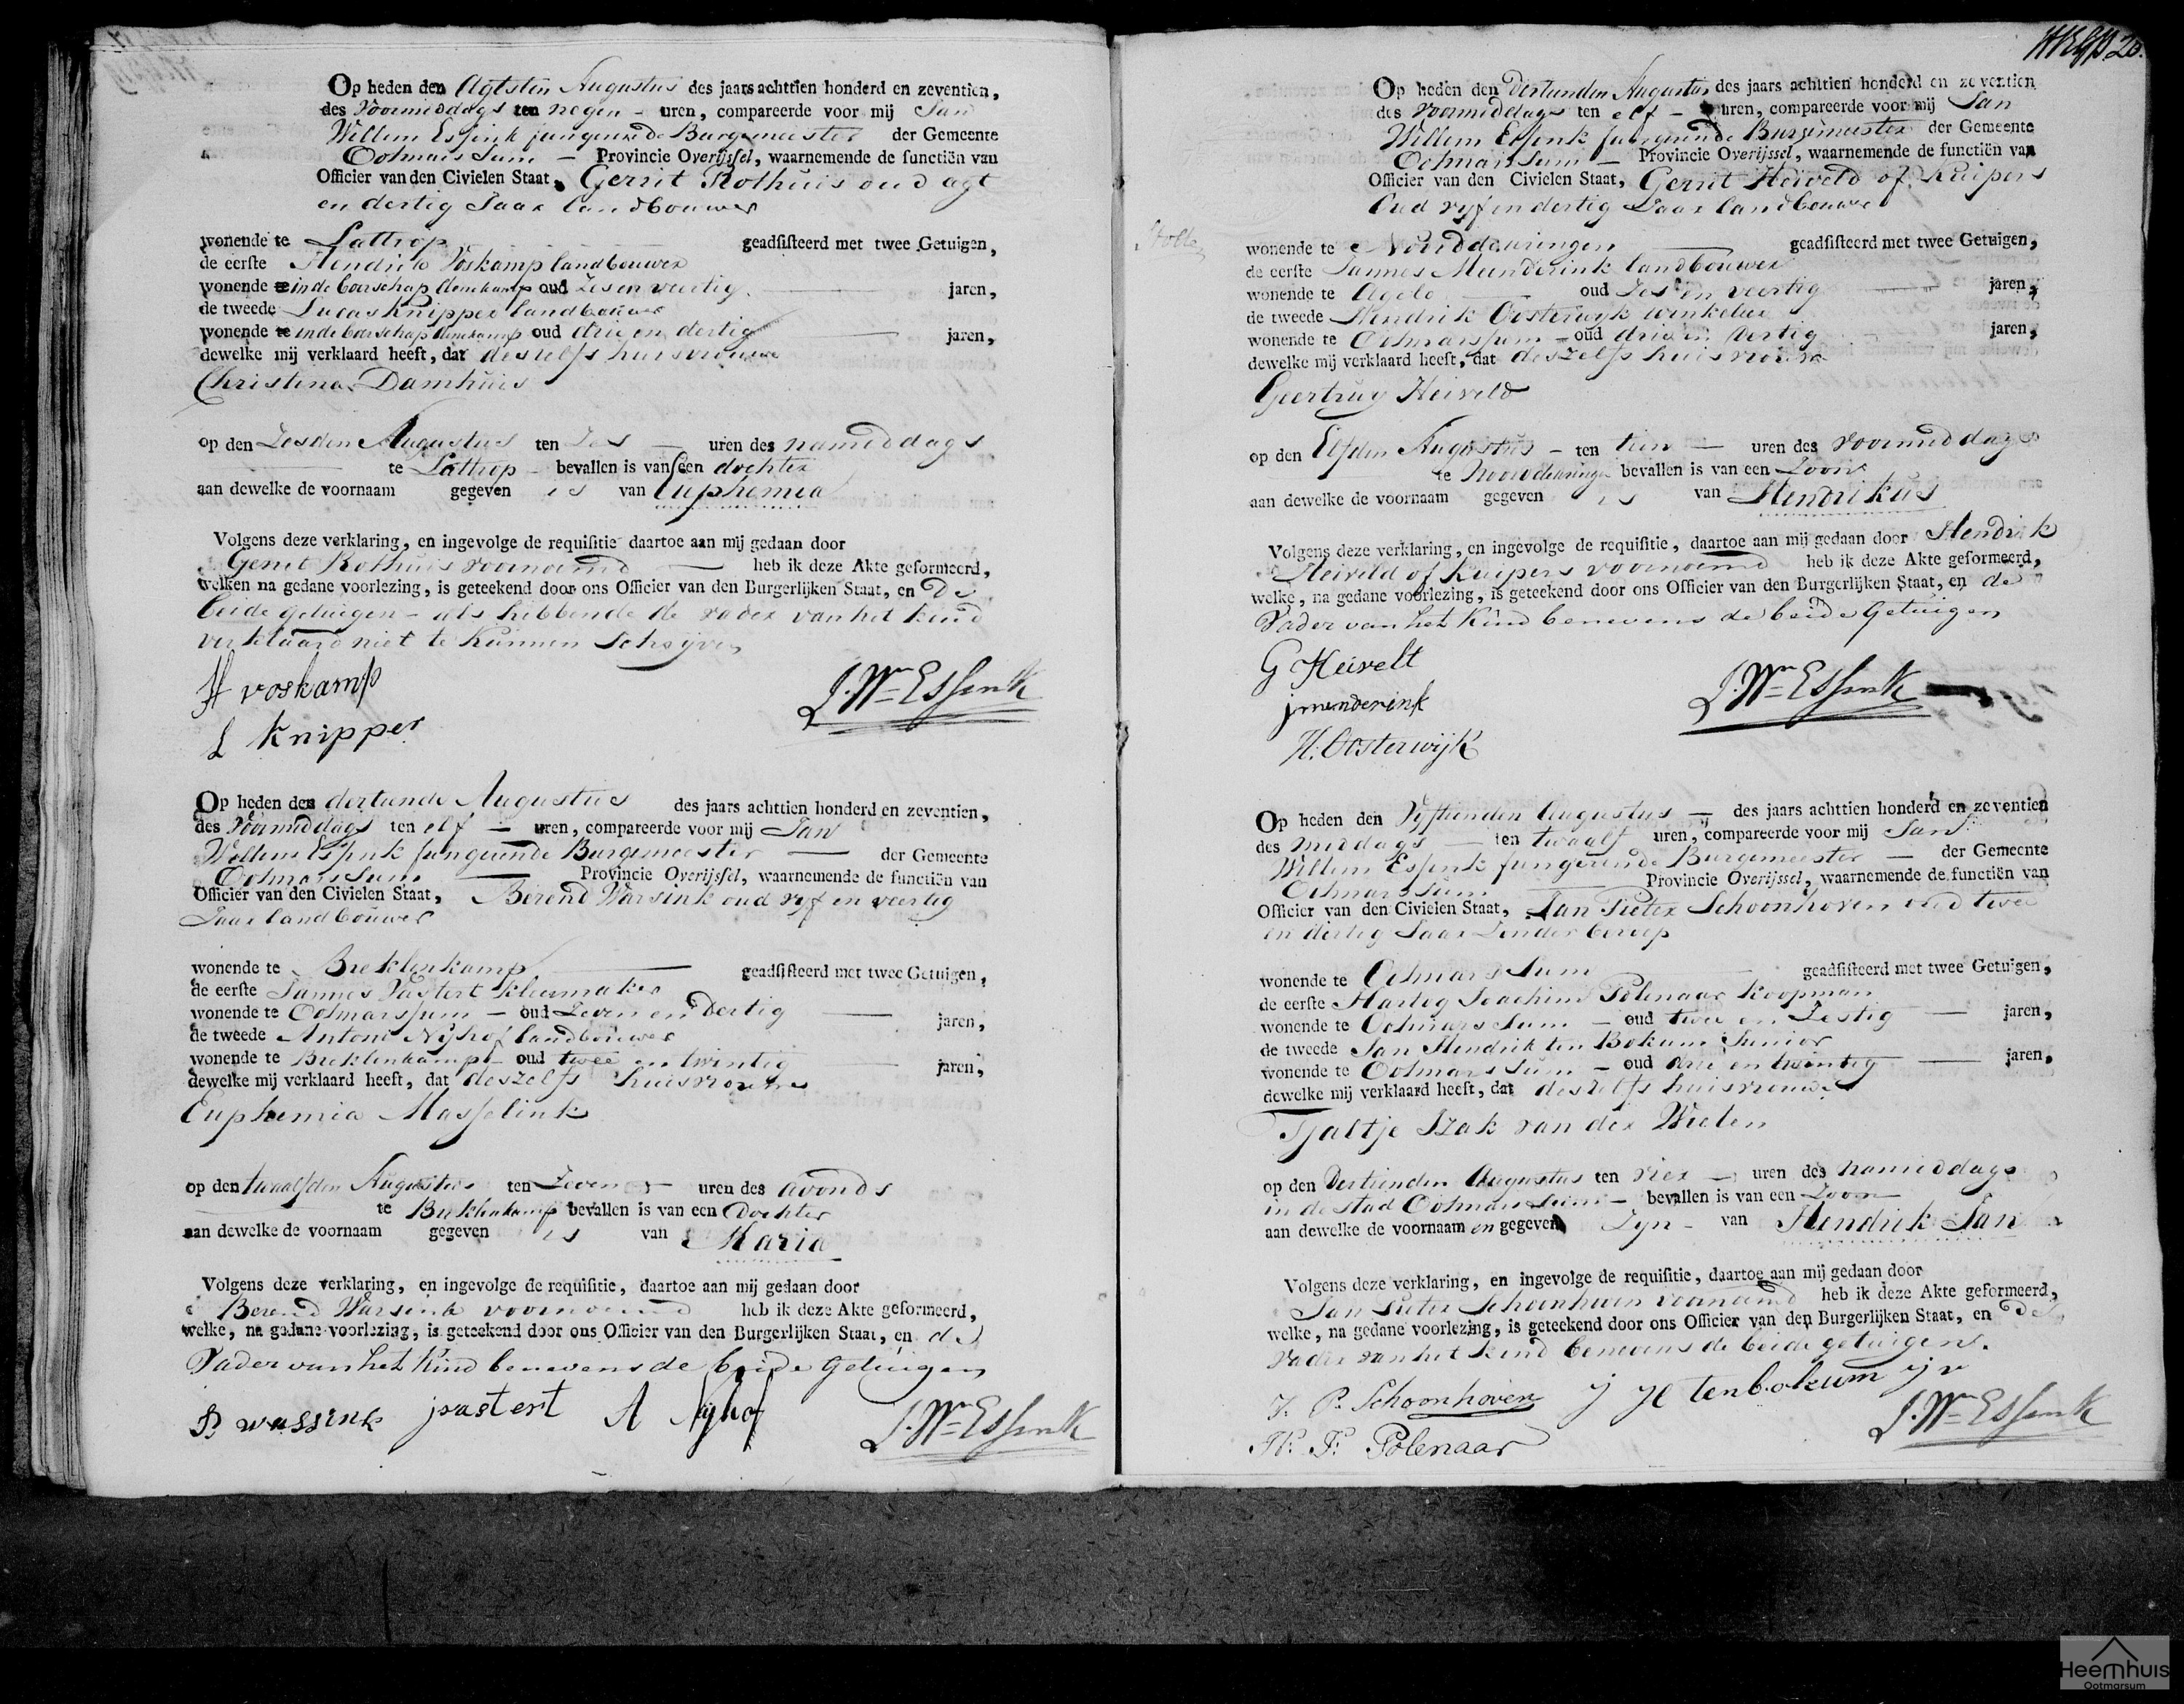 Op heden den Agtsten Augustus des jaars achttien honderd en zeventien,
des voormiddags ten negen - uren, compareerde voor mij Jan
Willem Essink fungerende Burgemeester der Gemeente
Ootmarssum - Provincie Overijssel, waarnemende de functiën van
Officier van den Civielen Staat, Gerrit Rothuis oud agt
en dertig Jaar landbouwer
wonende te Lattrop geadsisteerd met twee Getuigen,
de eerste Hendrik Voskamp landbouwer
wonende te in de boerschap denekamp oud Zes en veertig jaren,
de tweede Lucas Knipper landbouwer
wonende te in de boerschap denekamp oud drie en dertig jaren,
dewelke mij verklaard heeft, dat deszelfs huisvrouwe
Christina Damhuis
op den Zesden Augustus ten Zes - uren des namiddags
te Lattrop - bevallen is van een dochter
aan dewelke de voornaam gegeven is van Euphemia
Volgens deze verklaring, en ingevolge de requisitie daartoe aan mij gedaan door
Gerrit Rothuis voornoemd heb ik deze Akte geformeerd,
welken na gedane voorlezing, is geteekend door ons Officier van den Burgerlijken Staat, en De
beide getuigen - als hebbende de vader van het kind
verklaard niet te kunnen Schrijven
H voskamp
J. Wm Essink
L Knipper
Op heden den dertiende Augustus des jaars achttien honderd en zeventien,
des Voormiddags ten elf - uren, compareerde voor mij Jan
Willem Essink fungerende Burgemeester der Gemeente
Ootmarssum Provincie Overijssel, waarnemende de functiën van
Officier van den Civielen Staat, Berend Warsink oud vyf en veertig
Jaar landbouwer
wonende te Breklenkamp geadsisteerd met twee Getuigen,
de eerste Jannes Pastert kleermaker
wonende te Ootmarssum - oud Zeven en Dertig jaren,
de tweede Antoni Nyhof landbouwer
wonende te Breklenkamp - oud twee en twintig jaren,
dewelke mij verklaard heeft, dat deszelfs huisvrouwe
Euphemia Masselink
op den twaalfden Augustus ten Zeven - uren des avonds
te Breklenkamp bevallen is van een Dochter
aan dewelke de voornaam gegeven is van Maria
Volgens deze verklaring, en ingevolge de requisitie, daartoe aan mij gedaan door
Berend Warsink voornoemd heb ik deze Akte geformeerd,
welke, na gedane voorlezing, is geteekend door ons Officier van den Burgerlijken Staat, en de
Vader van het Kind benevens de beide Getuigen
B wassink jpastert A Nyhof
J. Wm Essink
20.
Op heden den dertienden Augustus des jaars achttien honderd en zeventien
des voormiddags ten elf - uren, compareerde voor mij Jan
Willem Essink fungerende Burgemeester der Gemeente
Ootmarssum - Provincie Overijssel, waarnemende de functiën van
Officier van den Civielen Staat, Gerrit Heiveld of Kuipers
Oud vyf en dertig Jaar landbouwer
wonende te Noorddeuringen geadsisteerd met twee Getuigen,
de eerste Jannes Menderink landbouwer
wonende te Agelo oud Zes en veertig jaren,
de tweede Hendrik Oosterwyk winkelier
wonende te Ootmarssum - oud drie en dertig jaren,
dewelke mij verklaard heeft, dat deszelfs huisvrouw
Geertruy Heiveld
op den Elfden Augustus - ten tien - uren des voormiddags
te Noorddeuringe bevallen is van een Zoon
aan dewelke de voornaam gegeven is van Hendrikus
Volgens deze verklaring, en ingevolge de requisitie, daartoe aan mij gedaan door Hendrik
Heiveld of Kuipers voornoemd heb ik deze Akte geformeerd,
welke, na gedane voorlezing, is geteekend door ons Officier van den Burgerlijken Staat, en de
Vader van het Kind benevens de beide Getuigen
G Heivelt
J. Wm Essink
jmenderink
H. Oosterwijk
Op heden den Vyftienden Augustus - des jaars achttien honderd en zeventien
des middags - ten twaalf uren, compareerde voor mij Jan
Willem Essink fungerende Burgemeester - der Gemeente
Ootmarssum Provincie Overijssel, waarnemende de functiën van
Officier van den Civielen Staat, Jan Pieter Schoonhoven oud twee
en dertig Jaar Zonder beroep
wonende te Ootmarssum geadsisteerd met twee Getuigen,
de eerste Hartog Joachim Polenaar Koopman
wonende te Ootmarssum - oud twee en Zestig jaren,
de tweede Jan Hendrik ten Bokum Junior
wonende te Ootmarssum - oud drie en twintig jaren,
dewelke mij verklaard heeft, dat deszelfs huisvrouwe
Tjaltje Izak van der Wielen
op den dertienden Augustus ten vier - uren des namiddags
in de stad Ootmarssum - bevallen is van een Zoon
aan dewelke de voornaam en gegeven Zyn - van Hendrik Jan
Volgens deze verklaring, en ingevolge de requisitie, daartoe aan mij gedaan door
Jan Pieter Schoonhoven voornoemd heb ik deze Akte geformeerd,
welke, na gedane voorlezing, is geteekend door ons Officier van den Burgerlijken Staat, en De
vader van het kind benevens de beide getuigen.
J. P. Schoonhoven j H tenbokum jr
J. Wm Essink
H. J. Polenaar
Heemhuis
Ootmarsum